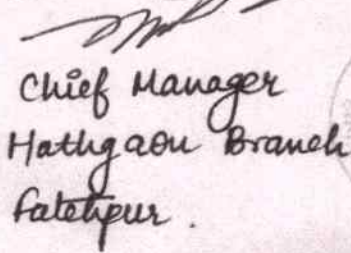 Chief Manager
Hathgaon Branch
Fatehpur.